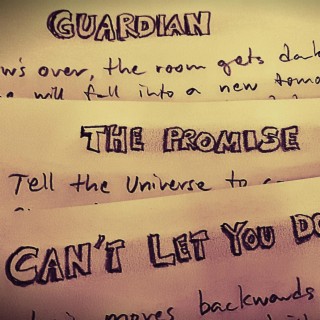 GUARDIAN
w's over, the room gets dark
will fall into a new tomo
THE PROMISE
Tell the Universe to
CAN'T LET YOU DO
moves backwards